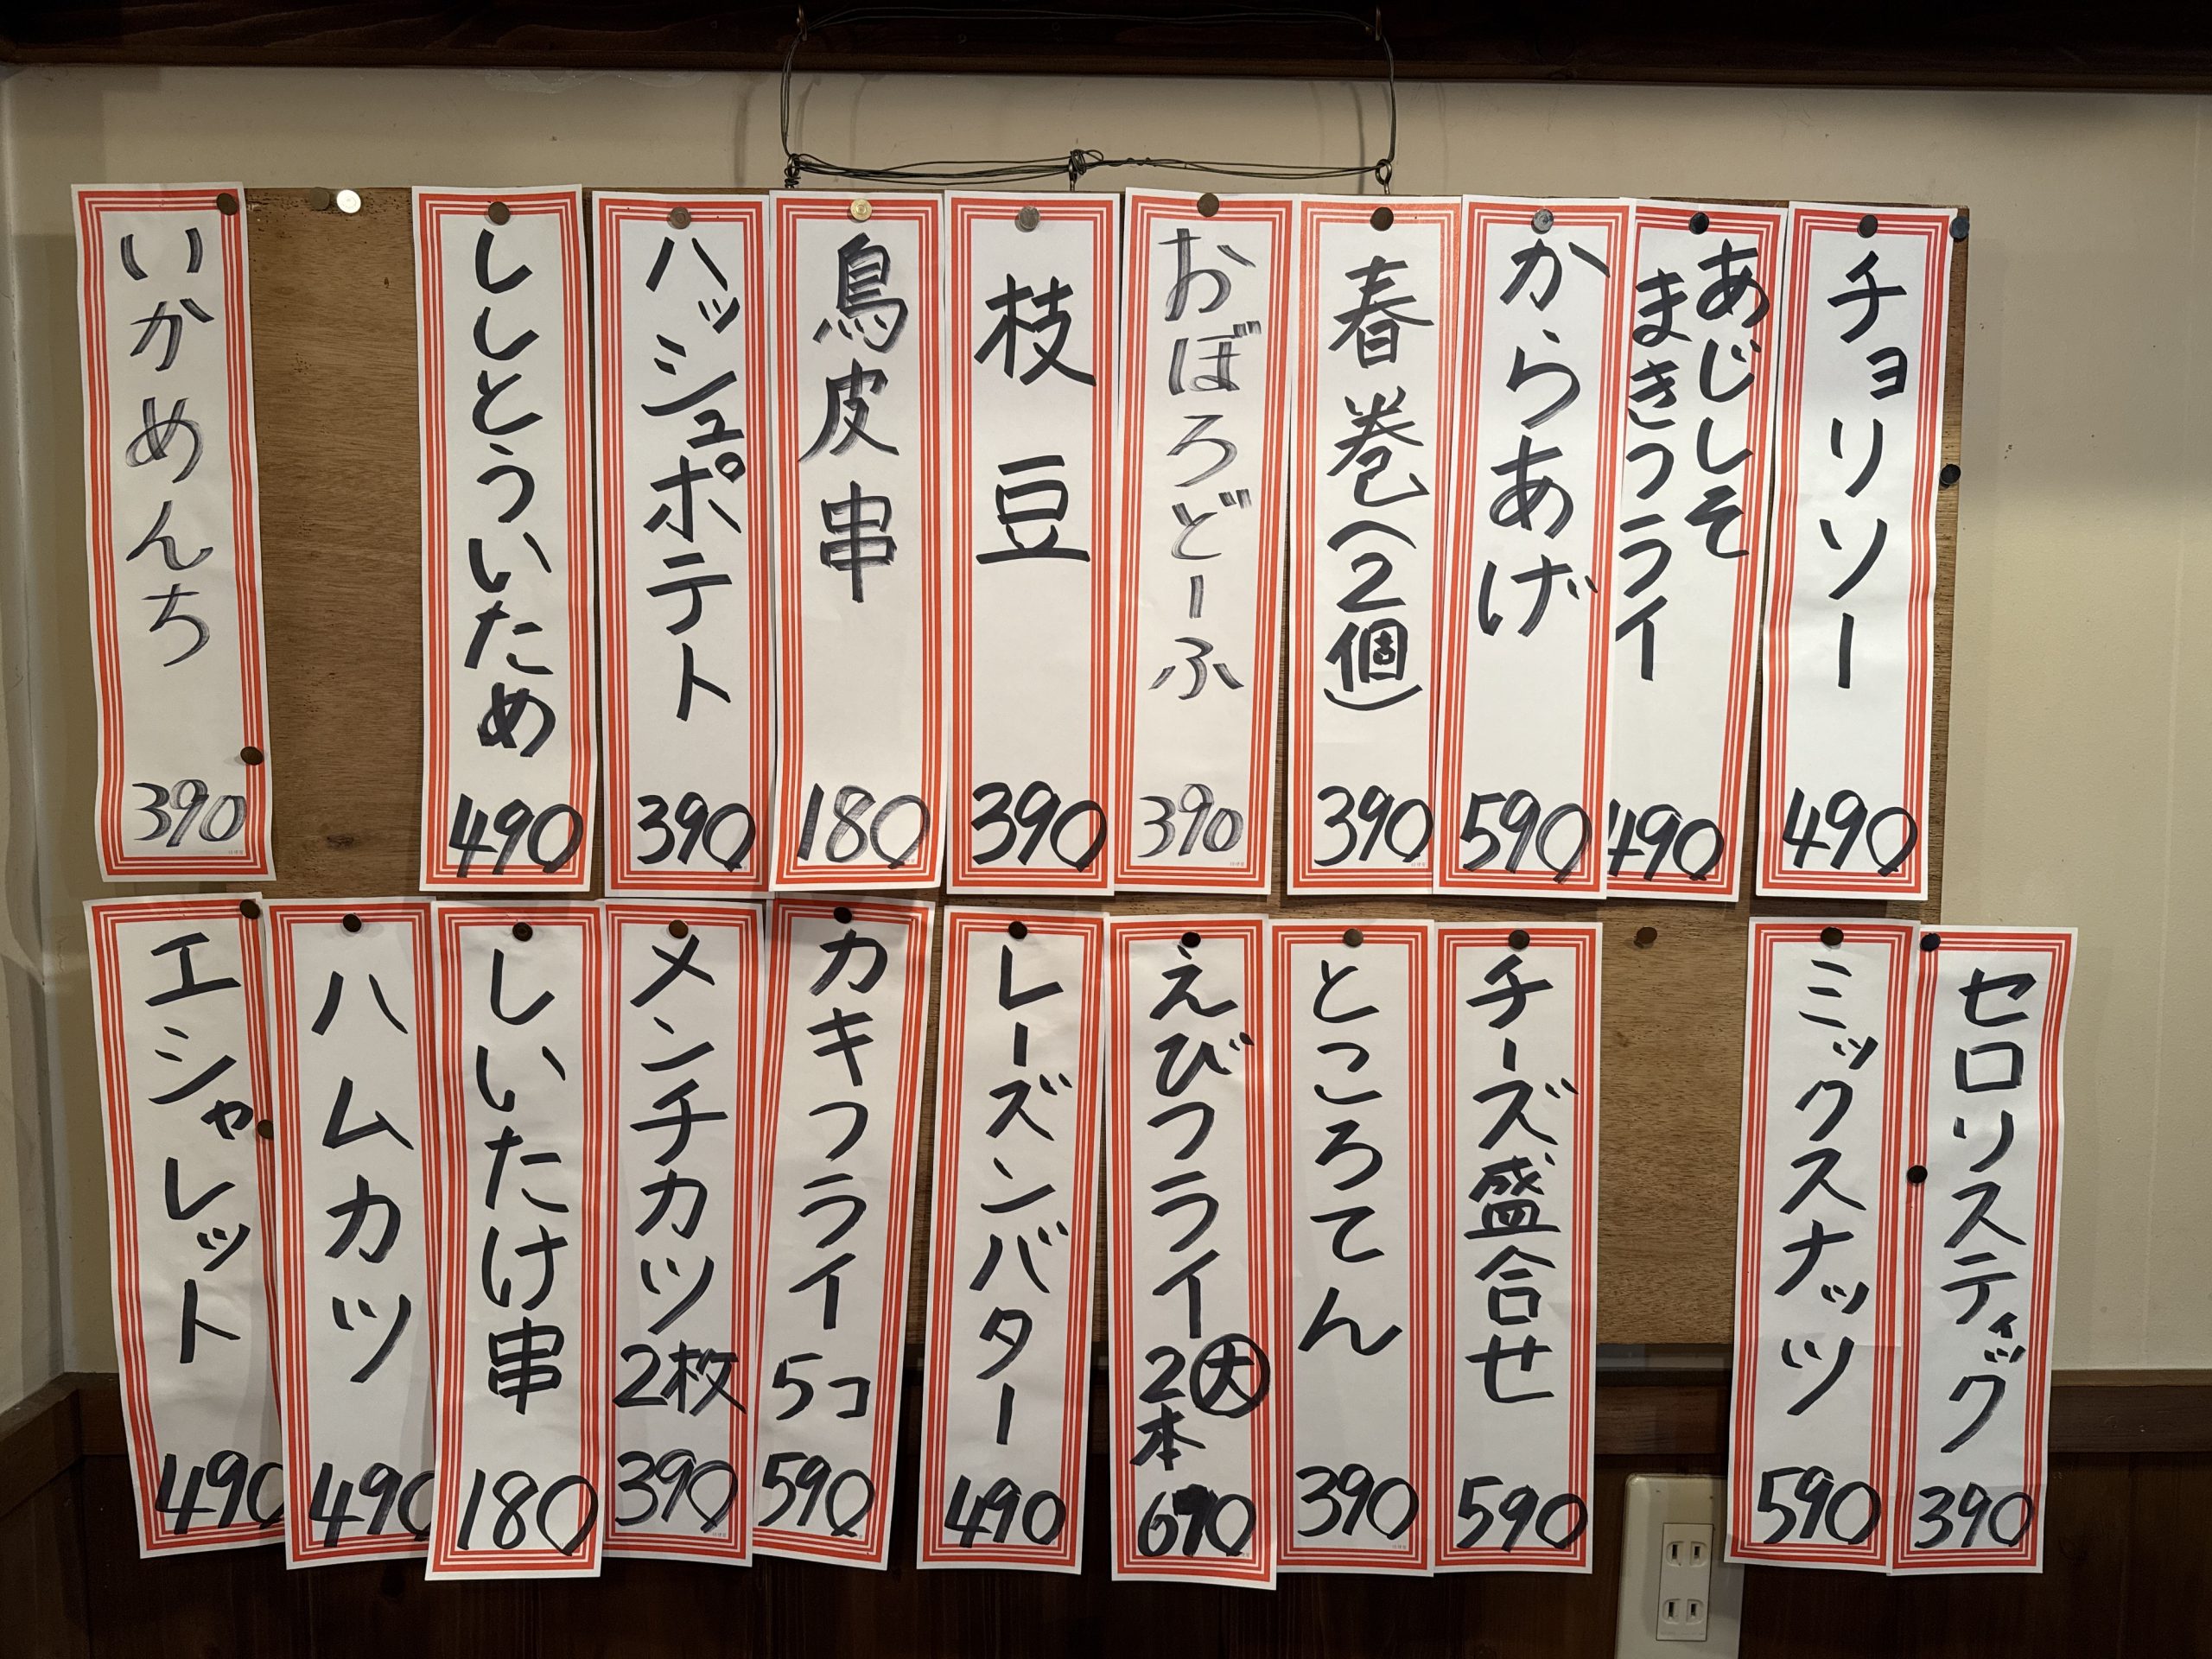 チョリソー
490
あじしそ
まきフライ
490
からあげ
590
春巻(2個)
390
おぼろどーふ
390
枝豆
390
鳥皮串
180
ハッシュポテト
390
ししとういため
490
いかめんち
390
セロリスティック
390
ミックスナッツ
590
チーズ盛合せ
590
ところてん
390
えびフライ
大
2本
690
レーズンバター
490
カキフライ
5コ
590
メンチカツ
2枚
390
しいたけ串
180
ハムカツ
490
エシャレット
490